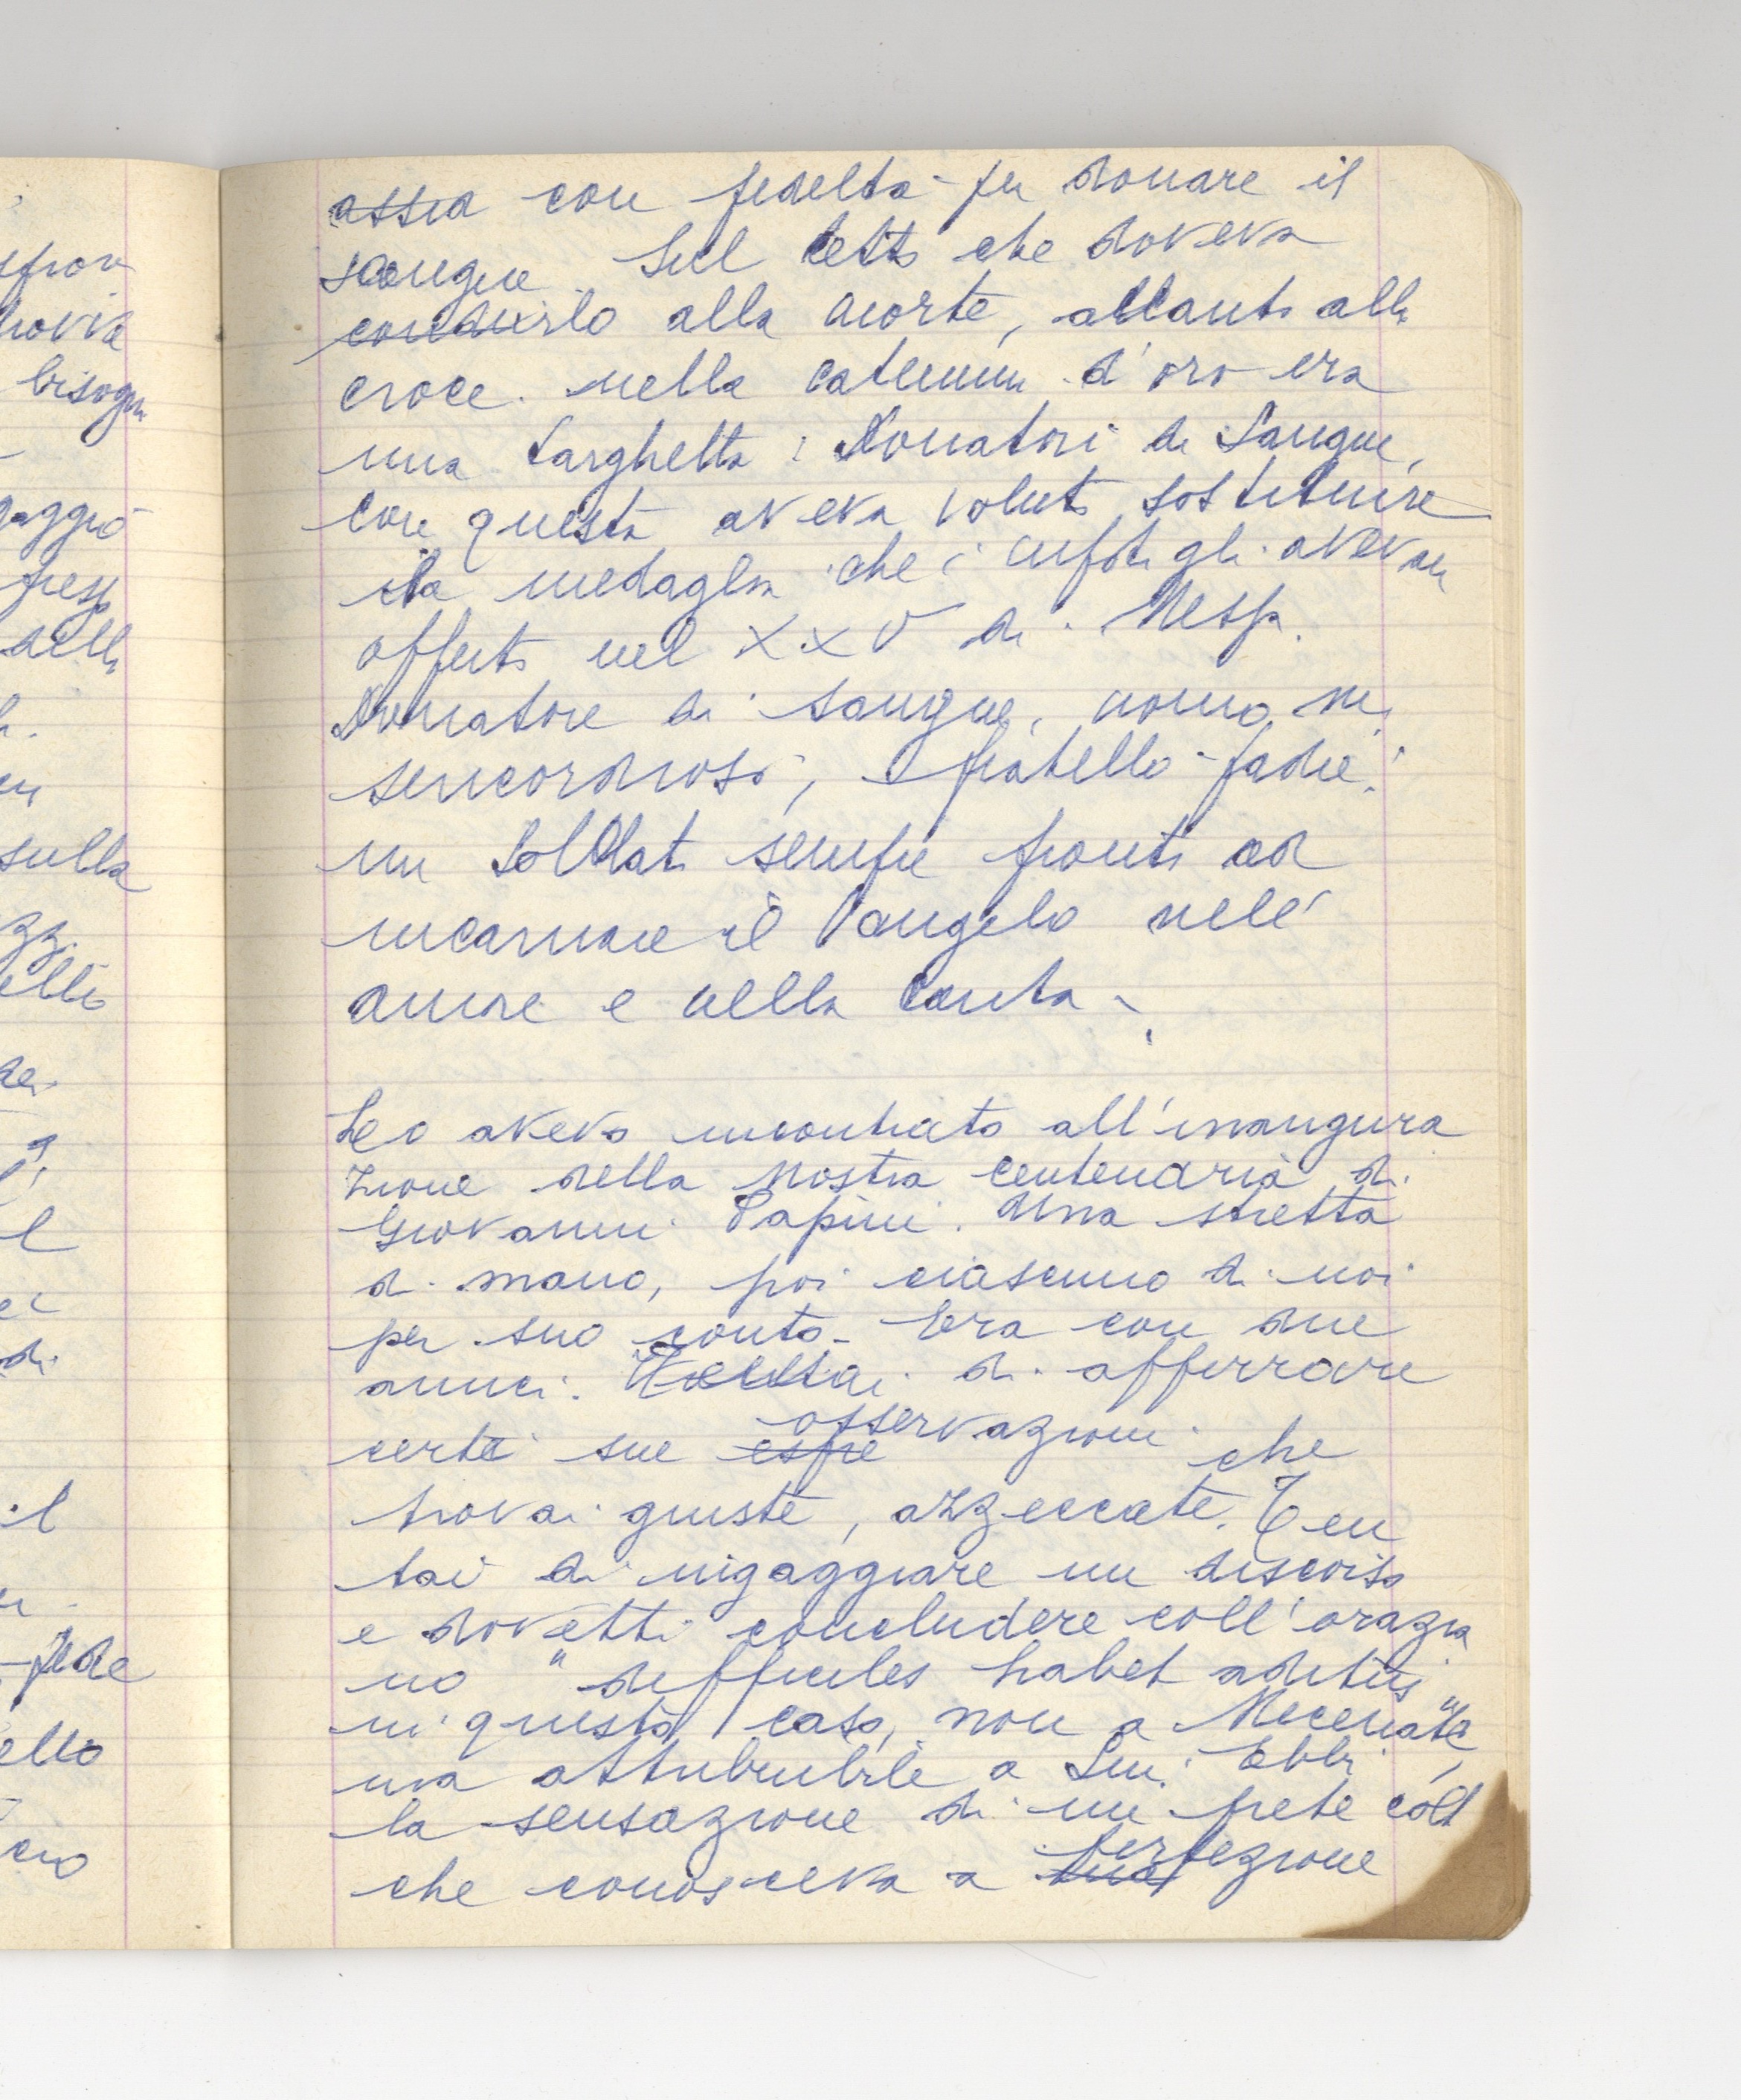 assia con fedeltà per donare il
sangue. Sul letto che doveva
condurlo alla morte, accanto alla
croce nella catenina d'oro era
una targhetta: Donatori di Sangue,
con questa aveva voluto sostituire
la medaglia che i nipoti gli avevan
offerto nel XXV di Mess.
Donatore di sangue, uomo mi
sericordioso, fratello-padre:
un soldato sempre pronto ad
incarnare il Vangelo nell'
amore e nella Carità.
Lo avevo incontrato all'inaugura
zione della mostra centenaria di
Giovanni Papini. Una stretta
di mano, poi ciascuno di noi
per suo conto. Era con due
amici. di afferrare
osservazioni
certe sue espre che
trovai giuste, azzeccate. Ten
tai di ingaggiare un discorso
e dovetti concludere coll'orazia
no "difficiles habet aditus"
in questo caso, non a Mecenate,
ma attribuibile a Lui. Ebbi
la sensazione di un prete colto
perfezione
che conosceva a
spron
bisogn
gaggiò
della
sulla
zz.
ello
di
il
fede
ello